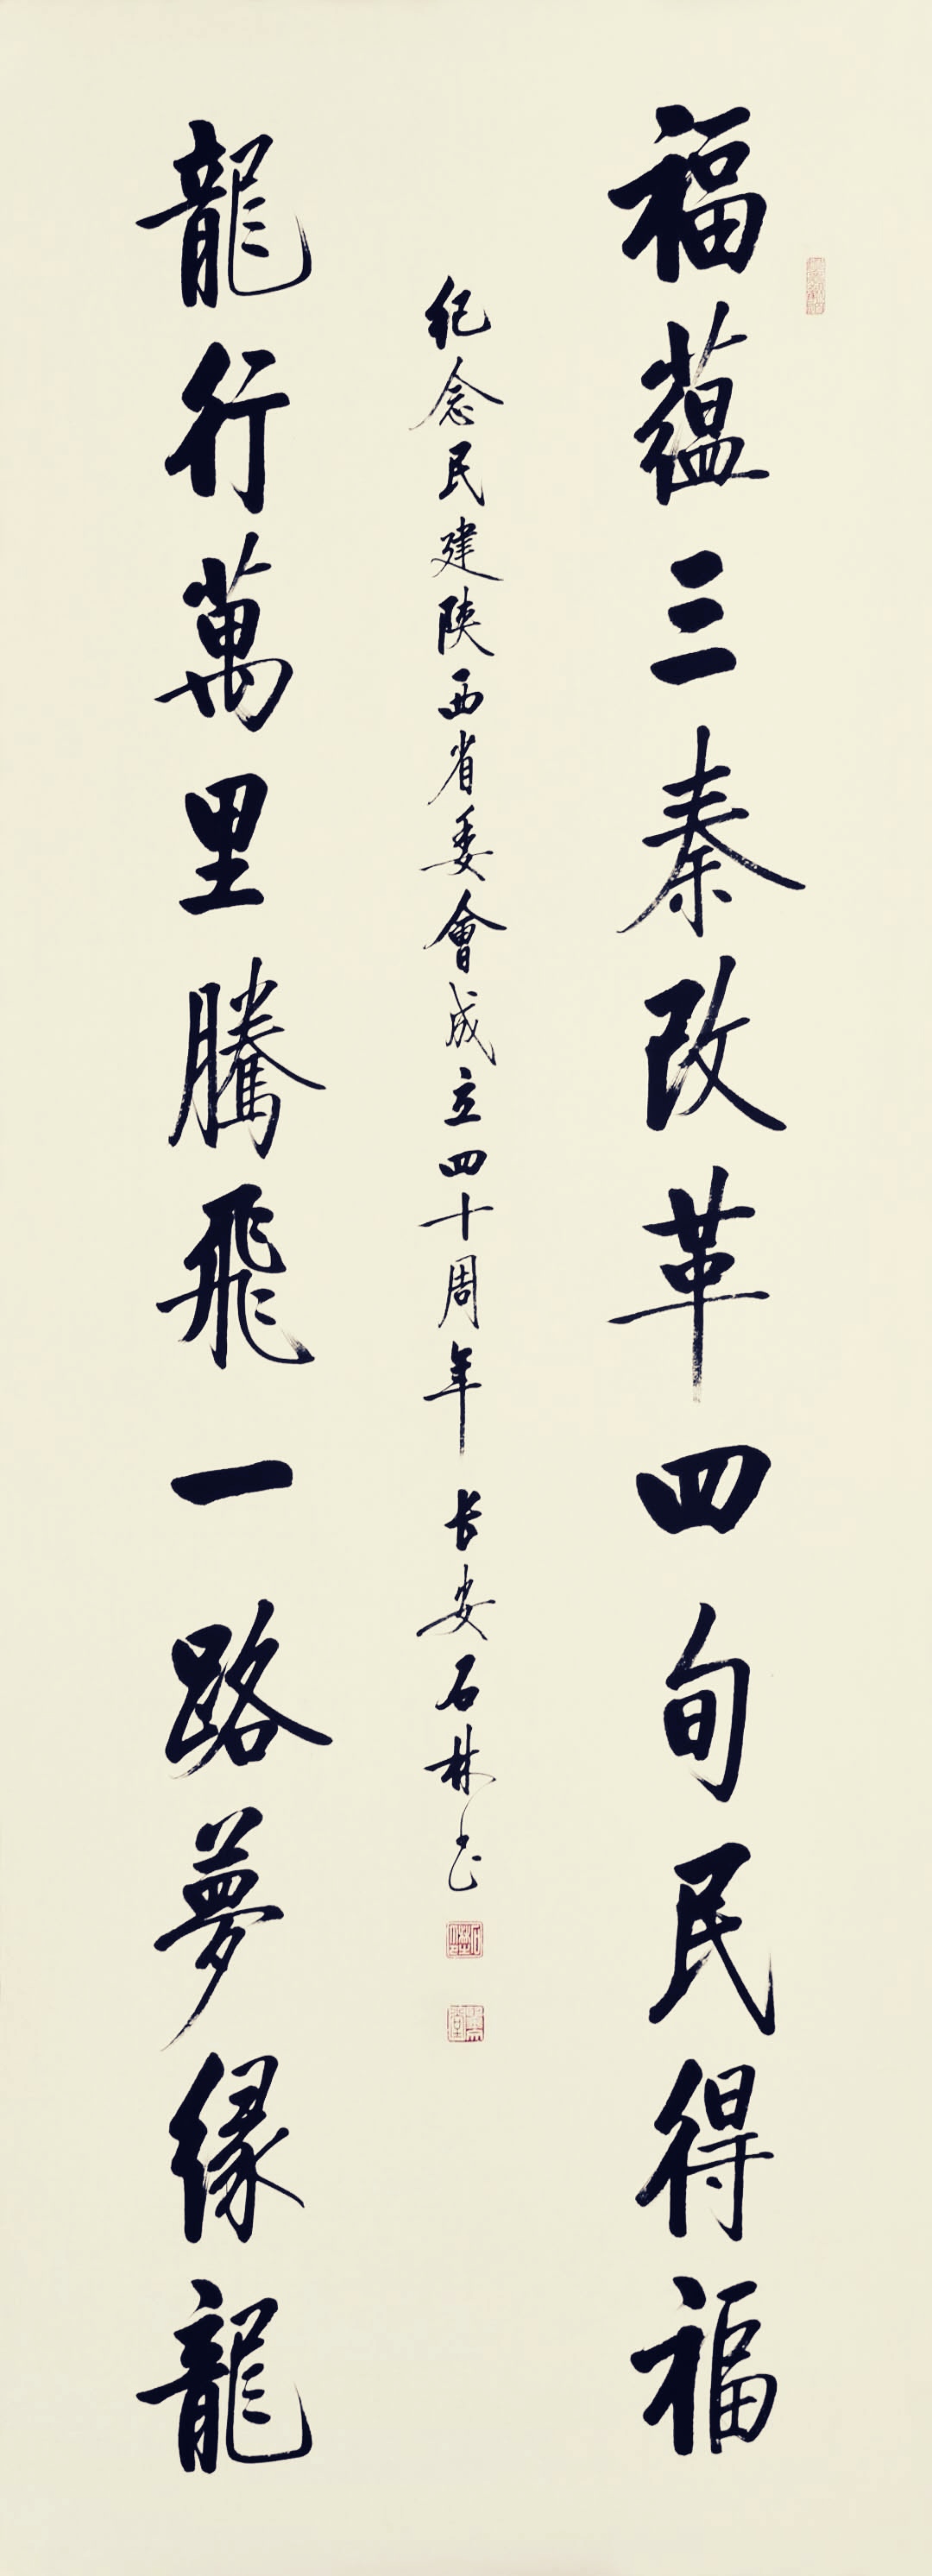 福蕴三秦改革四旬民得福
紀念民建陕西省委會成立四十周年 长安石林书
龍行萬里騰飛一路夢緣龍